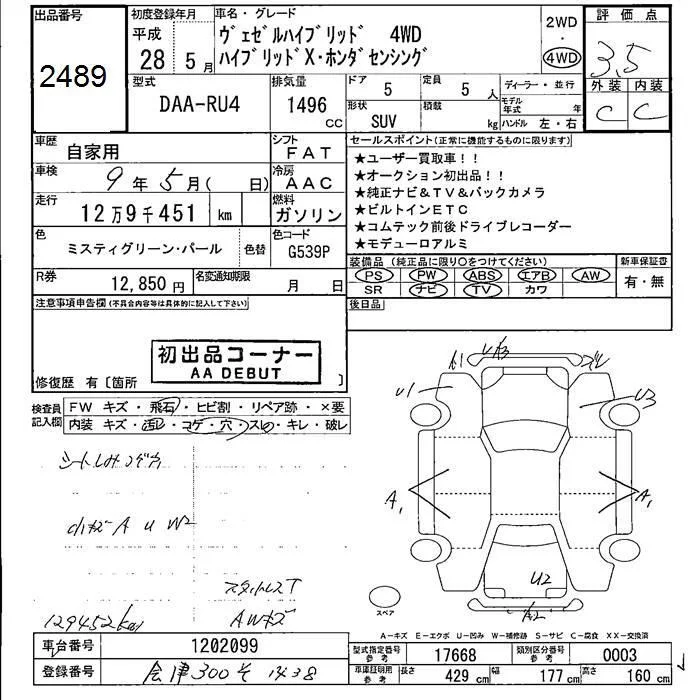 出品番号
2489
初度登録年月
平成
28 5月
車名・グレード
ヴェゼルハイブリッド 4WD
ハイブリッドX・ホンダセンシング
2WD
・
4WD
評価点
3.5
外装 内装
C C
型式
DAA-RU4
排気量
1496
CC
ドア
5
定員
5 人
形状
SUV
積載
kg
ディーラー・並行
モデル年式 年
ハンドル 左・右
車歴
自家用
シフト
FAT
車検
9年5月( 日)
冷房
AAC
走行
12万9千451 km
燃料
ガソリン
色
ミスティグリーン・パール
色替
色コード
G539P
R券
12,850円
名変通知期限
月 日
セールスポイント(正常に機能するものに限ります)
★ユーザー買取車!!
★オークション初出品!!
★純正ナビ&TV&バックカメラ
★ビルトインETC
★コムテック前後ドライブレコーダー
★モデューロアルミ
装備品(純正品に限り○をつけてください)
PS PW ABS エアB AW
SR ナビ TV カワ
新車保証書
有・無
後日品
注意事項申告欄(不具合内容等は具体的に記入して下さい)
初出品コーナー
AA DEBUT
修復歴 有〔箇所 〕
検査員記入欄
FW キズ・飛石・ヒビ割・リペア跡・×要
内装 キズ・汚レ・コゲ・穴・スレ・キレ・破レ
シートしみコゲ穴
小キズ A U W2
スタットレスT
129452km
AWキズ
U1
U3
A1
A1
U2
A2
スペア
A-キズ E-エクボ U-凹み W-補修跡 S-サビ C-腐食 XX-交換済
車台番号
1202099
登録番号
会津300そ1438
型式指定番号
参考
17668
類別区分番号
参考
0003
車庫証明用
参考
長さ 429 cm 幅 177 cm 高さ 160 cm